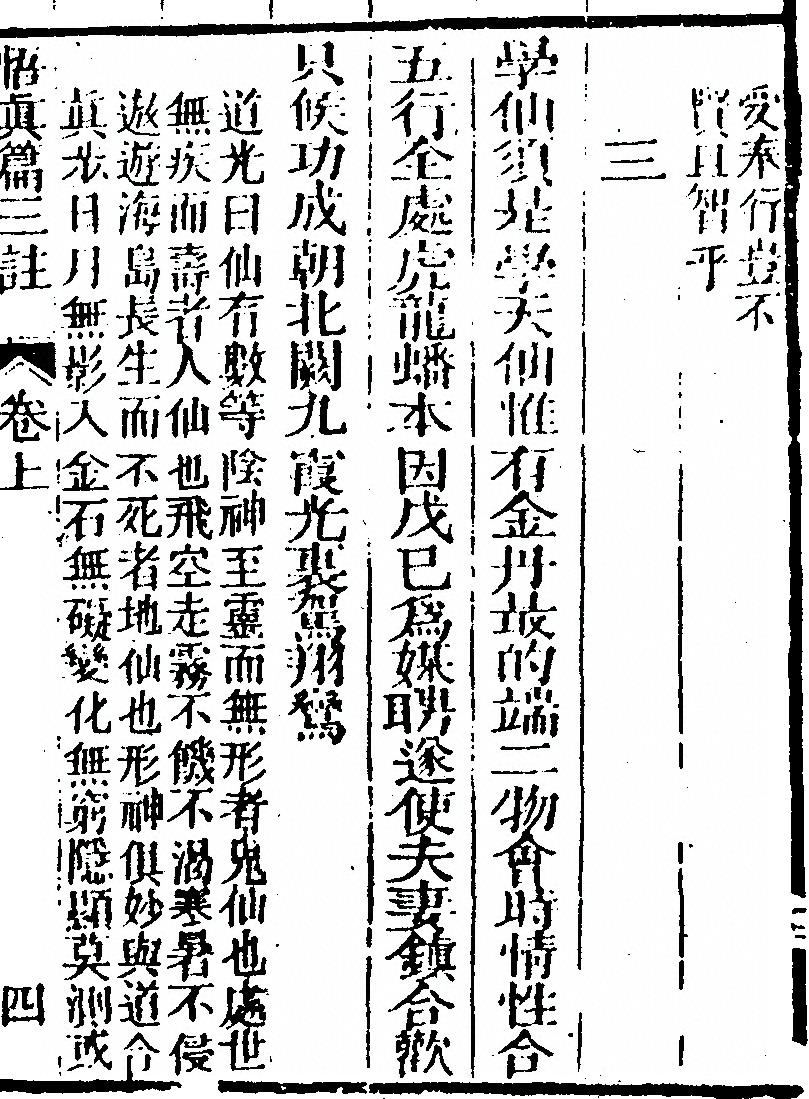 愛奉行豈不
賢且智乎
三
學仙須是學天仙惟有金丹最的端二物會時情性合
五行全處虎龍蟠本因戊巳爲媒聘遂使夫妻鎮合歡
只候功成朝北闕九霞光裏駕翔鸞
道光曰仙有數等陰神至靈而無形者鬼仙也處世
無疾而壽者人仙也飛空走霧不饑不渴寒暑不侵
遨遊海島長生而不死者地仙也形神俱妙與道合
眞步日月無影入金石無礙變化無窮隱顯莫測或
悟眞篇三註
卷上
四